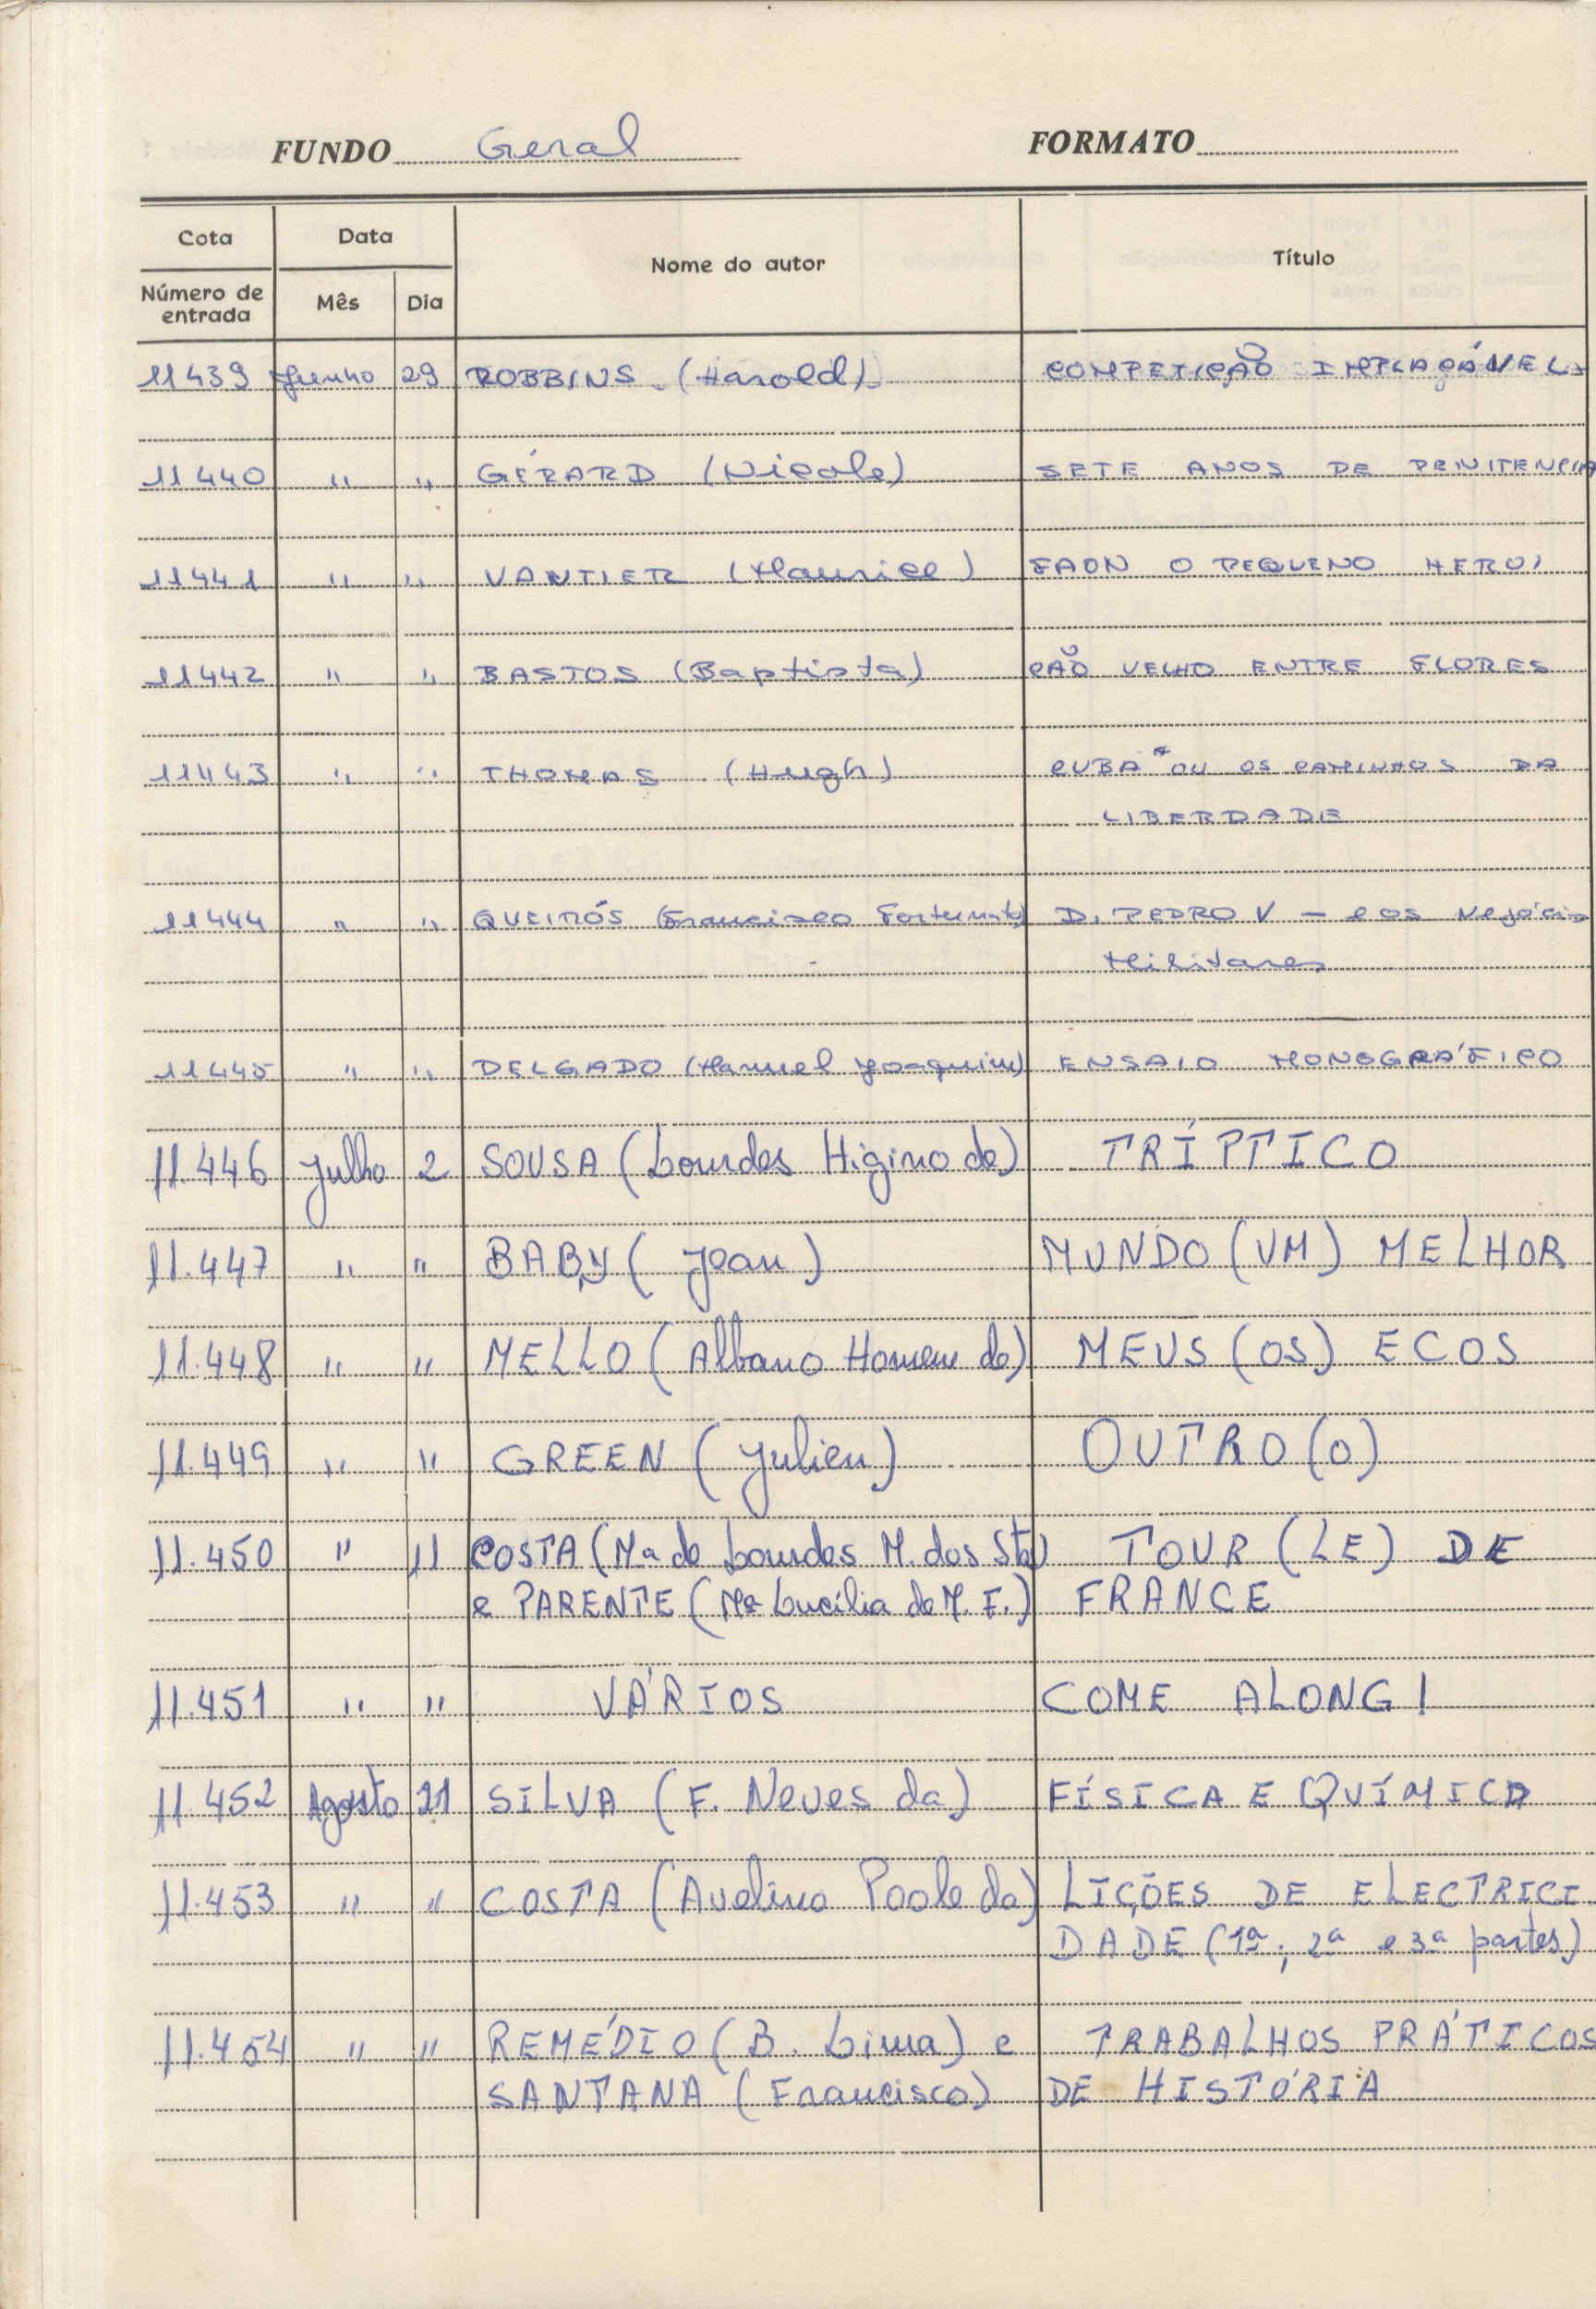 FUNDO Geral FORMATO
Cota Data Nome do autor Título
Número de entrada Mês Dia
11439 Junho 29 ROBBINS (Harold) COMPETIÇÃO IMPLACÁVEL
11440 " " GÉRARD (Nicole) SETE ANOS DE PENITENCIA
11441 " " VANTIER (Maurice) FAON O PEQUENO HEROI
11442 " " BASTOS (Baptista) CÃO VELHO ENTRE FLORES
11443 " " THOMAS (Hugh) CUBA ou OS CAMINHOS DA
LIBERDADE
11444 " " QUEIRÓS (Francisco Fortunato) D. PEDRO V — e os Negócios
Militares
11445 " " DELGADO (Manuel Joaquim) ENSAIO MONOGRÁFICO
11.446 Julho 2 SOUSA (Lourdes Higino de) TRÍPTICO
11.447 " " BABY (Jean) MUNDO (UM) MELHOR
11.448 " " MELLO (Albano Homem de) MEUS (OS) ECOS
11.449 " " GREEN (Julien) OUTRO (O)
11.450 " 11 COSTA (Mª de Lourdes M. dos Stos) TOUR (LE) DE
e PARENTE (Mª Lucília de M. F.) FRANCE
11.451 " " VÁRIOS COME ALONG!
11.452 Agosto 21 SILVA (F. Neves da) FÍSICA E QUÍMICA
11.453 " " COSTA (Avelino Poole da) LIÇÕES DE ELECTRICI
DADE (1ª, 2ª e 3ª partes)
11.454 " " REMÉDIO (B. Lima) e TRABALHOS PRÁTICOS
SANTANA (Francisco) DE HISTÓRIA